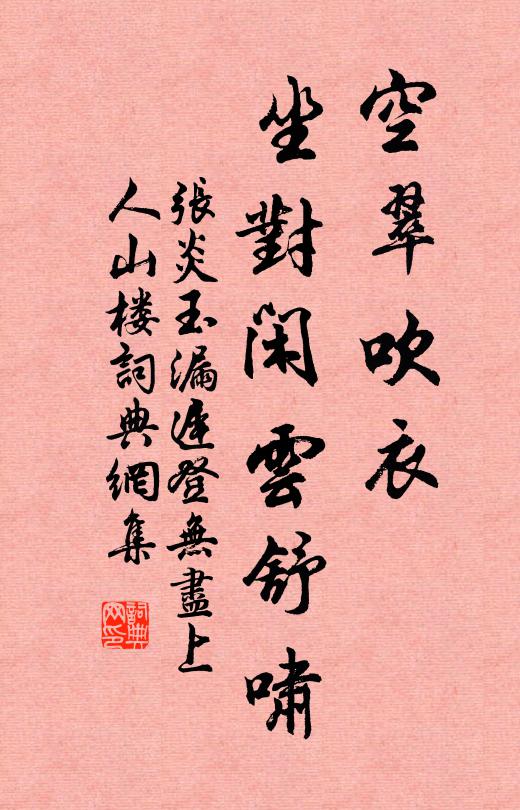 空翠吹衣
坐對閑雲舒嘯
張炎玉漏遲登無盡上
人山楼詞典網集
詞典網印